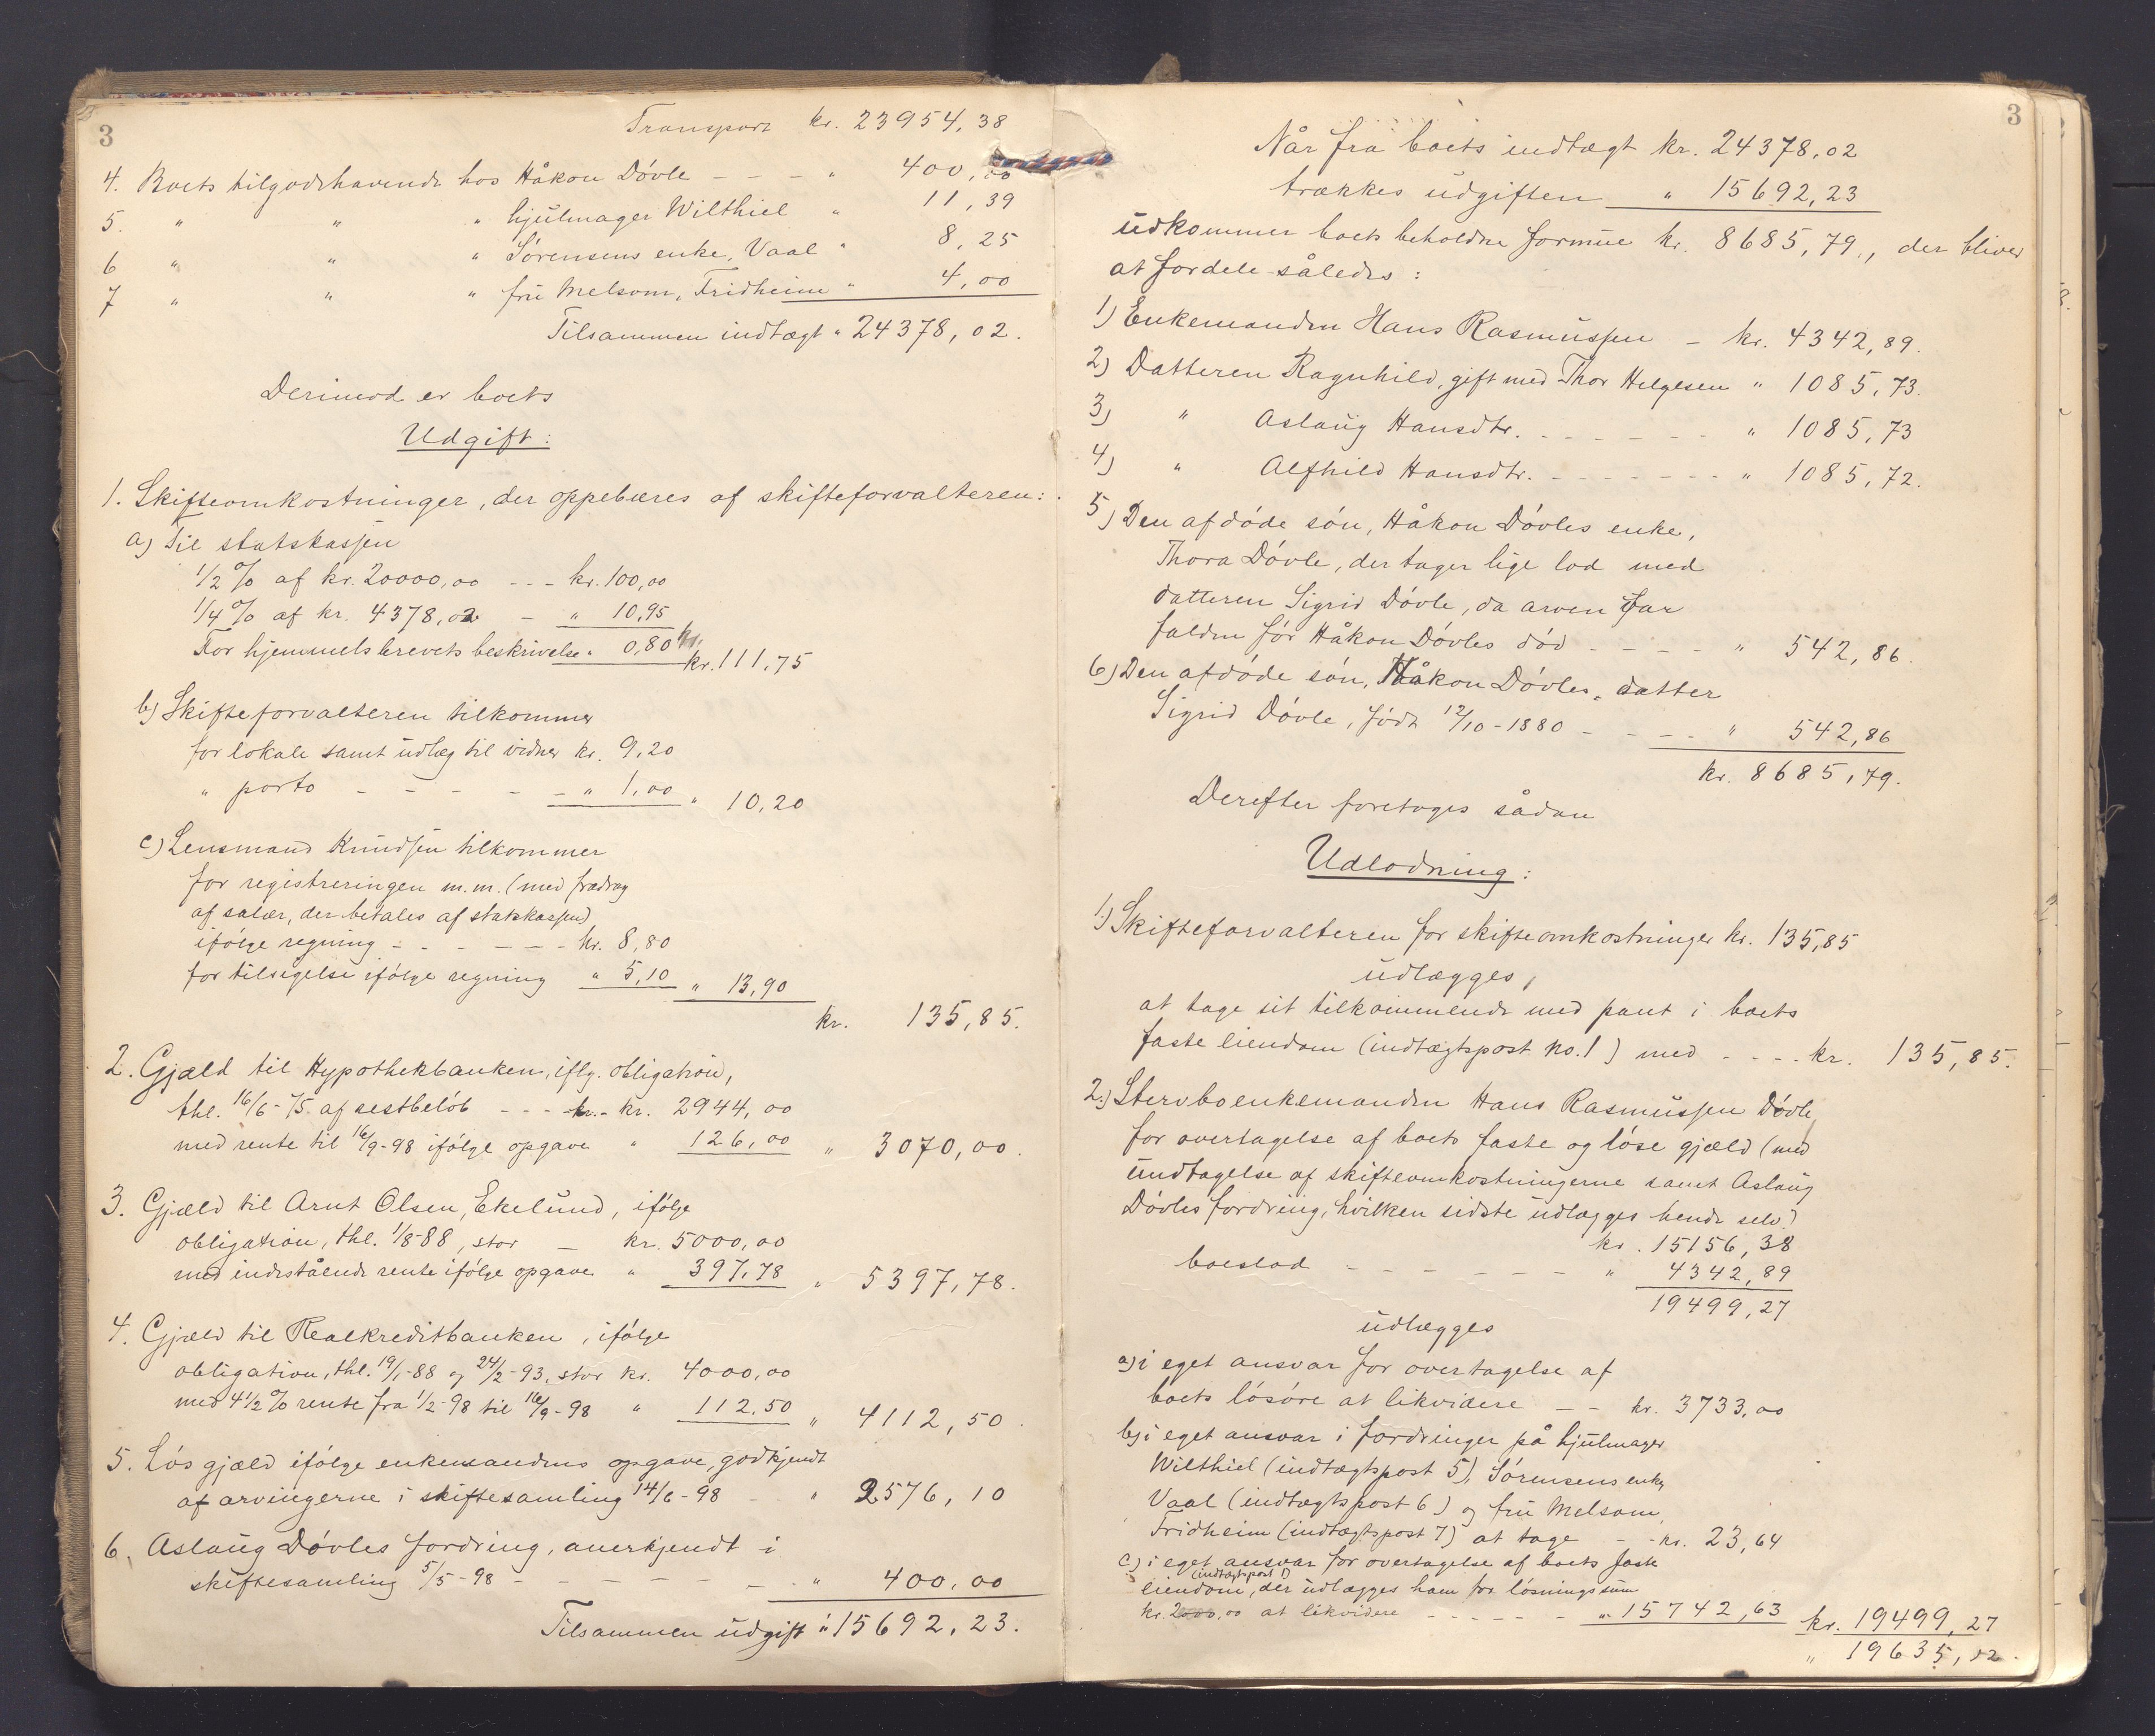 3
Transport kr. 23954,38
4. Boets tilgodehavende hos Håkon Dövle - - - " 400,00
5. " " " hjulmager Wilthiel " 11,39
6 " " " Sörensens enke, Vaal " 8,25
7 " " " fru Melsom, Fridheim " 4,00
Tilsammen indtægt " 24378,02.
Derimod er boets
Udgift:
1. Skifteomkostninger, der oppebæres af skifteforvalteren:
a) Til statskassen
1/2 % af kr. 20000,00 - - - kr. 100,00
1/4 % af kr. 4378,02 - " 10,95
For hjemmelsbrevets beskrivelse " 0,80
kr. 111,75
b) Skifteforvalteren tilkommer
for lokale samt udlæg til vidner kr. 9,20
" porto - - - - - " 1,00 " 10,20
c) Lensmand Knudsen tilkommer
for registreringen m.m. (med fradrag
af salær, der betales af statskassen)
ifölge regning - - - - - - kr. 8,80
for tilsigelse ifölge regning " 5,10 " 13,90
kr. 135,85.
2. Gjæld til Hypothekbanken, iflg. obligation,
thl. 16/6-75. af restbelöb - - - kr. 2944,00
med rente til 16/9-98 ifölge opgave " 126,00 " 3070,00.
3. Gjæld til Arnt Olsen, Ekelund, ifölge
obligation, thl. 1/8-88, stor - kr. 5000,00
med indestående rente ifölge opgave " 397,78 " 5397,78.
4. Gjæld til Realkreditbanken, ifölge
obligation, thl. 19/1-88 og 24/2-93, stor kr. 4000,00
med 4 1/2 % rente fra 1/2-98 til 16/9-98 " 112,50 " 4112,50.
5. Lös gjæld ifölge enkemandens opgave, godkjendt
af arvingerne i skiftesamling 14/6-98 - - " 2576,10
6. Aslaug Dövles fordring, anerkjendt i
skiftesamling 5/5-98 - - - - - - - " 400,00
Tilsammen udgift " 15692,23.
3
Når fra boets indtægt kr. 24378,02
trækkes udgiften " 15692,23
udkommer boets beholdne formue kr. 8685,79., der bliver
at fordele således:
1) Enkemanden Hans Rasmussen - kr. 4342,89.
2) Datteren Ragnhild, gift med Thor Helgesen " 1085,73.
3) " Aslaug Hansdtr. - - - - - - " 1085,73
4) " Alfhild Hansdtr. - - - - - - - " 1085,72.
5) Den afdöde sön, Håkon Dövles enke,
Thora Dövle, der tager lige lod med
datteren Sigrid Dövle, da arven var
falden för Håkon Dövles död - - - - " 542,86.
6) Den afdöde sön, Håkon Dövles, datter
Sigrid Dövle, födt 12/10-1880 - - - - " 542,86
kr. 8685,79.
Derefter foretages sådan
Udlodning:
1) Skifteforvalteren for skifteomkostninger kr. 135,85
udlægges,
at tage sit tilkommende med pant i boets
faste eiendom (indtægtspost no. 1) med - - - - kr. 135,85.
2.) Stervboenkemanden Hans Rasmussen Dövle
for overtagelse af boets faste og löse gjæld (med
undtagelse af skifteomkostningerne samt Aslaug
Dövles fordring, hvilken sidste udlægges hende selv)
kr. 15156,38
boeslod - - - - - - " 4342,89
19499,27
udlægges
a) i eget ansvar for overtagelse af
boets lösöre at likvidere - - kr. 3733,00
b) i eget ansvar i fordringer på hjulmager
Wilthiel (indtægtspost 5), Sörensens enke,
Vaal (indtægtspost 6) og fru Melsom,
Fridheim (indtægtspost 7) at tage - - kr. 23,64
c) i eget ansvar for overtagelse af boets faste
eiendom, (indtægtspost 1) der udlægges ham for lösningssum
kr. 20000,00 at likvidere - - - - - - " 15742,63 kr. 19499,27
" 19635,12.